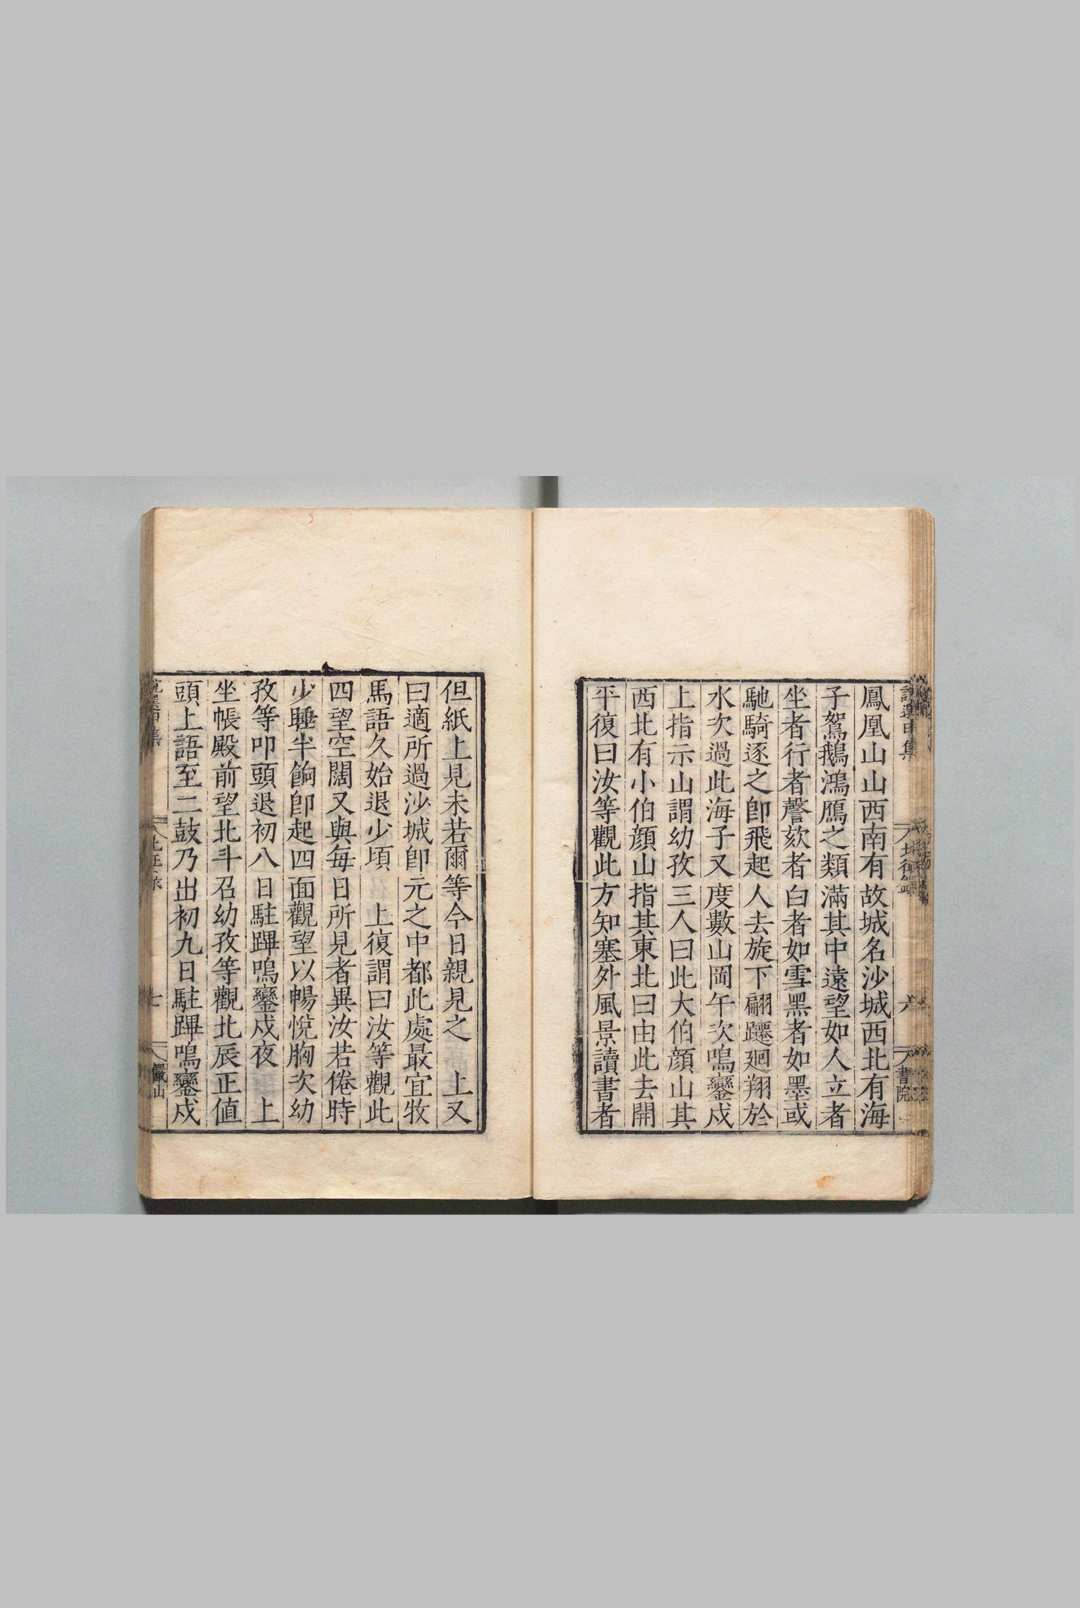 鳳凰山山西南有故城名沙城西北有海
子駕鵝鴻鴈之類滿其中遠望如人立者
坐者行者謦欬者白者如雪黑者如墨或
馳騎逐之卽飛起人去旋下翩躚廻翔於
水次過此海子又度數山岡午次鳴鑾戍
上指示山謂幼孜三人曰此大伯顔山其
西北有小伯顔山指其東北曰由此去開
平復曰汝等觀此方知塞外風景讀書者
但紙上見未若爾等今日親見之 上又
曰適所過沙城卽元之中都此處最宜牧
馬語久始退少頃 上復謂曰汝等觀此
四望空闊又與每日所見者異汝若倦時
少睡半餉卽起四面觀望以暢悅胸次幼
孜等叩頭退初八日駐蹕鳴鑾戍夜 上
坐帳殿前望北斗召幼孜等觀北辰正值
頭上語至二鼓乃出初九日駐蹕鳴鑾戍
六
書院
七
儼山